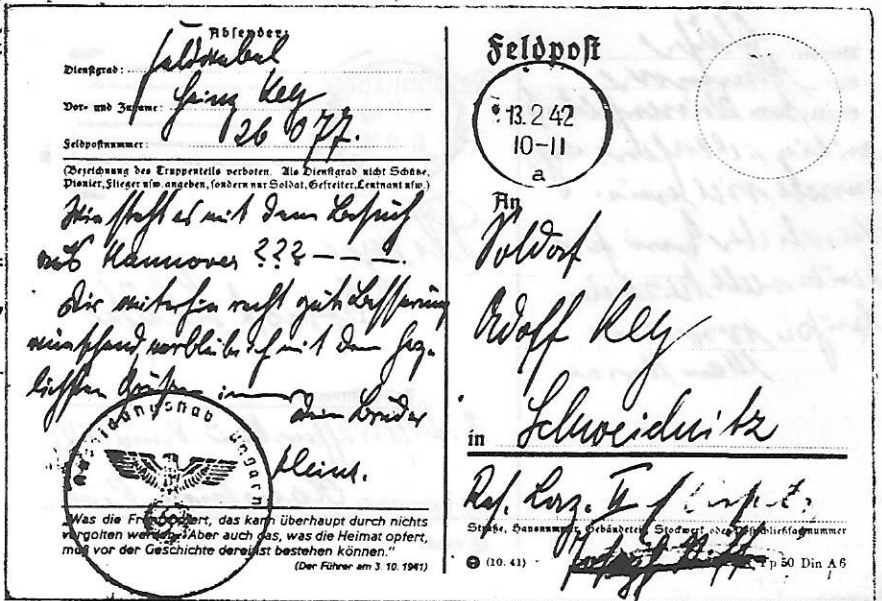 Absender:
Dienstgrad: Feldwebel
Vor- und Zuname: Heinz Key
Feldpostnummer: 26 077.
(Bezeichnung des Truppenteils verboten. Als Dienstgrad nicht Schütze,
Pionier, Flieger usw. angeben, sondern nur Soldat, Gefreiter, Leutnant usw.)
Wie steht es mit dem Besuch
aus Hannover ??? — — —
Dir weiterhin recht gute Besserung
wünschend, verbleibe ich mit den herz-
lichsten Grüßen immer
Dein Bruder
Heinz.
Ausbildungsstab Ungarn
„Was die Front opfert, das kann überhaupt durch nichts
vergolten werden. Aber auch das, was die Heimat opfert,
muß vor der Geschichte dereinst bestehen können."
(Der Führer am 3. 10. 1941)
Feldpost
13.2.42
10-11
a
An
Soldat
Adolf Key
in Schweidnitz
Res. Laz. II
Straße, Hausnummer, Gebäudeteil, Stockwerk oder Postschließfachnummer
(10. 41) Din A 6